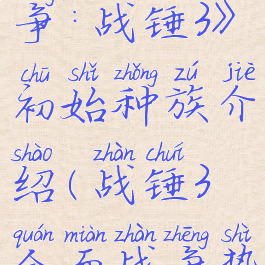 争：战锤3》
chū shǐ zhǒng zú jiè
初始种族介
shào zhàn chuí
绍(战锤3
quán miàn zhàn zhēng shì
全面战争势